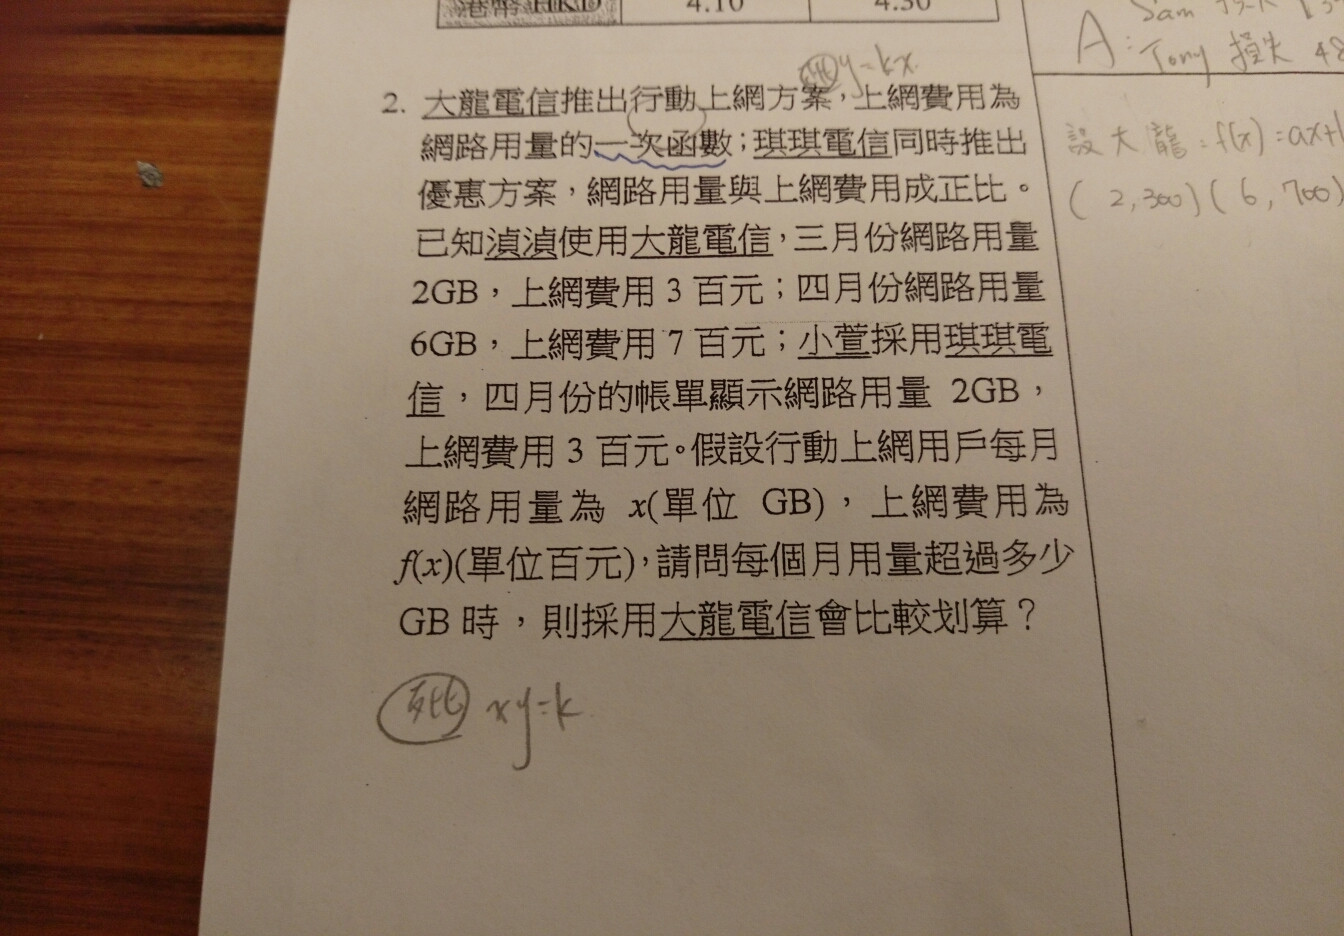 港幣 HKD 4.10 4.30
Sam
A: Tony 損失 48
正比 y=kx
2. 大龍電信推出行動上網方案，上網費用為
網路用量的一次函數；琪琪電信同時推出
優惠方案，網路用量與上網費用成正比。
已知湞湞使用大龍電信，三月份網路用量
2GB，上網費用 3 百元；四月份網路用量
6GB，上網費用 7 百元；小萱採用琪琪電
信，四月份的帳單顯示網路用量 2GB，
上網費用 3 百元。假設行動上網用戶每月
網路用量為 x(單位 GB)，上網費用為
f(x)(單位百元)，請問每個月用量超過多少
GB 時，則採用大龍電信會比較划算？
反比 xy=k
設大龍：f(x)=ax+
(2,300)(6,700)